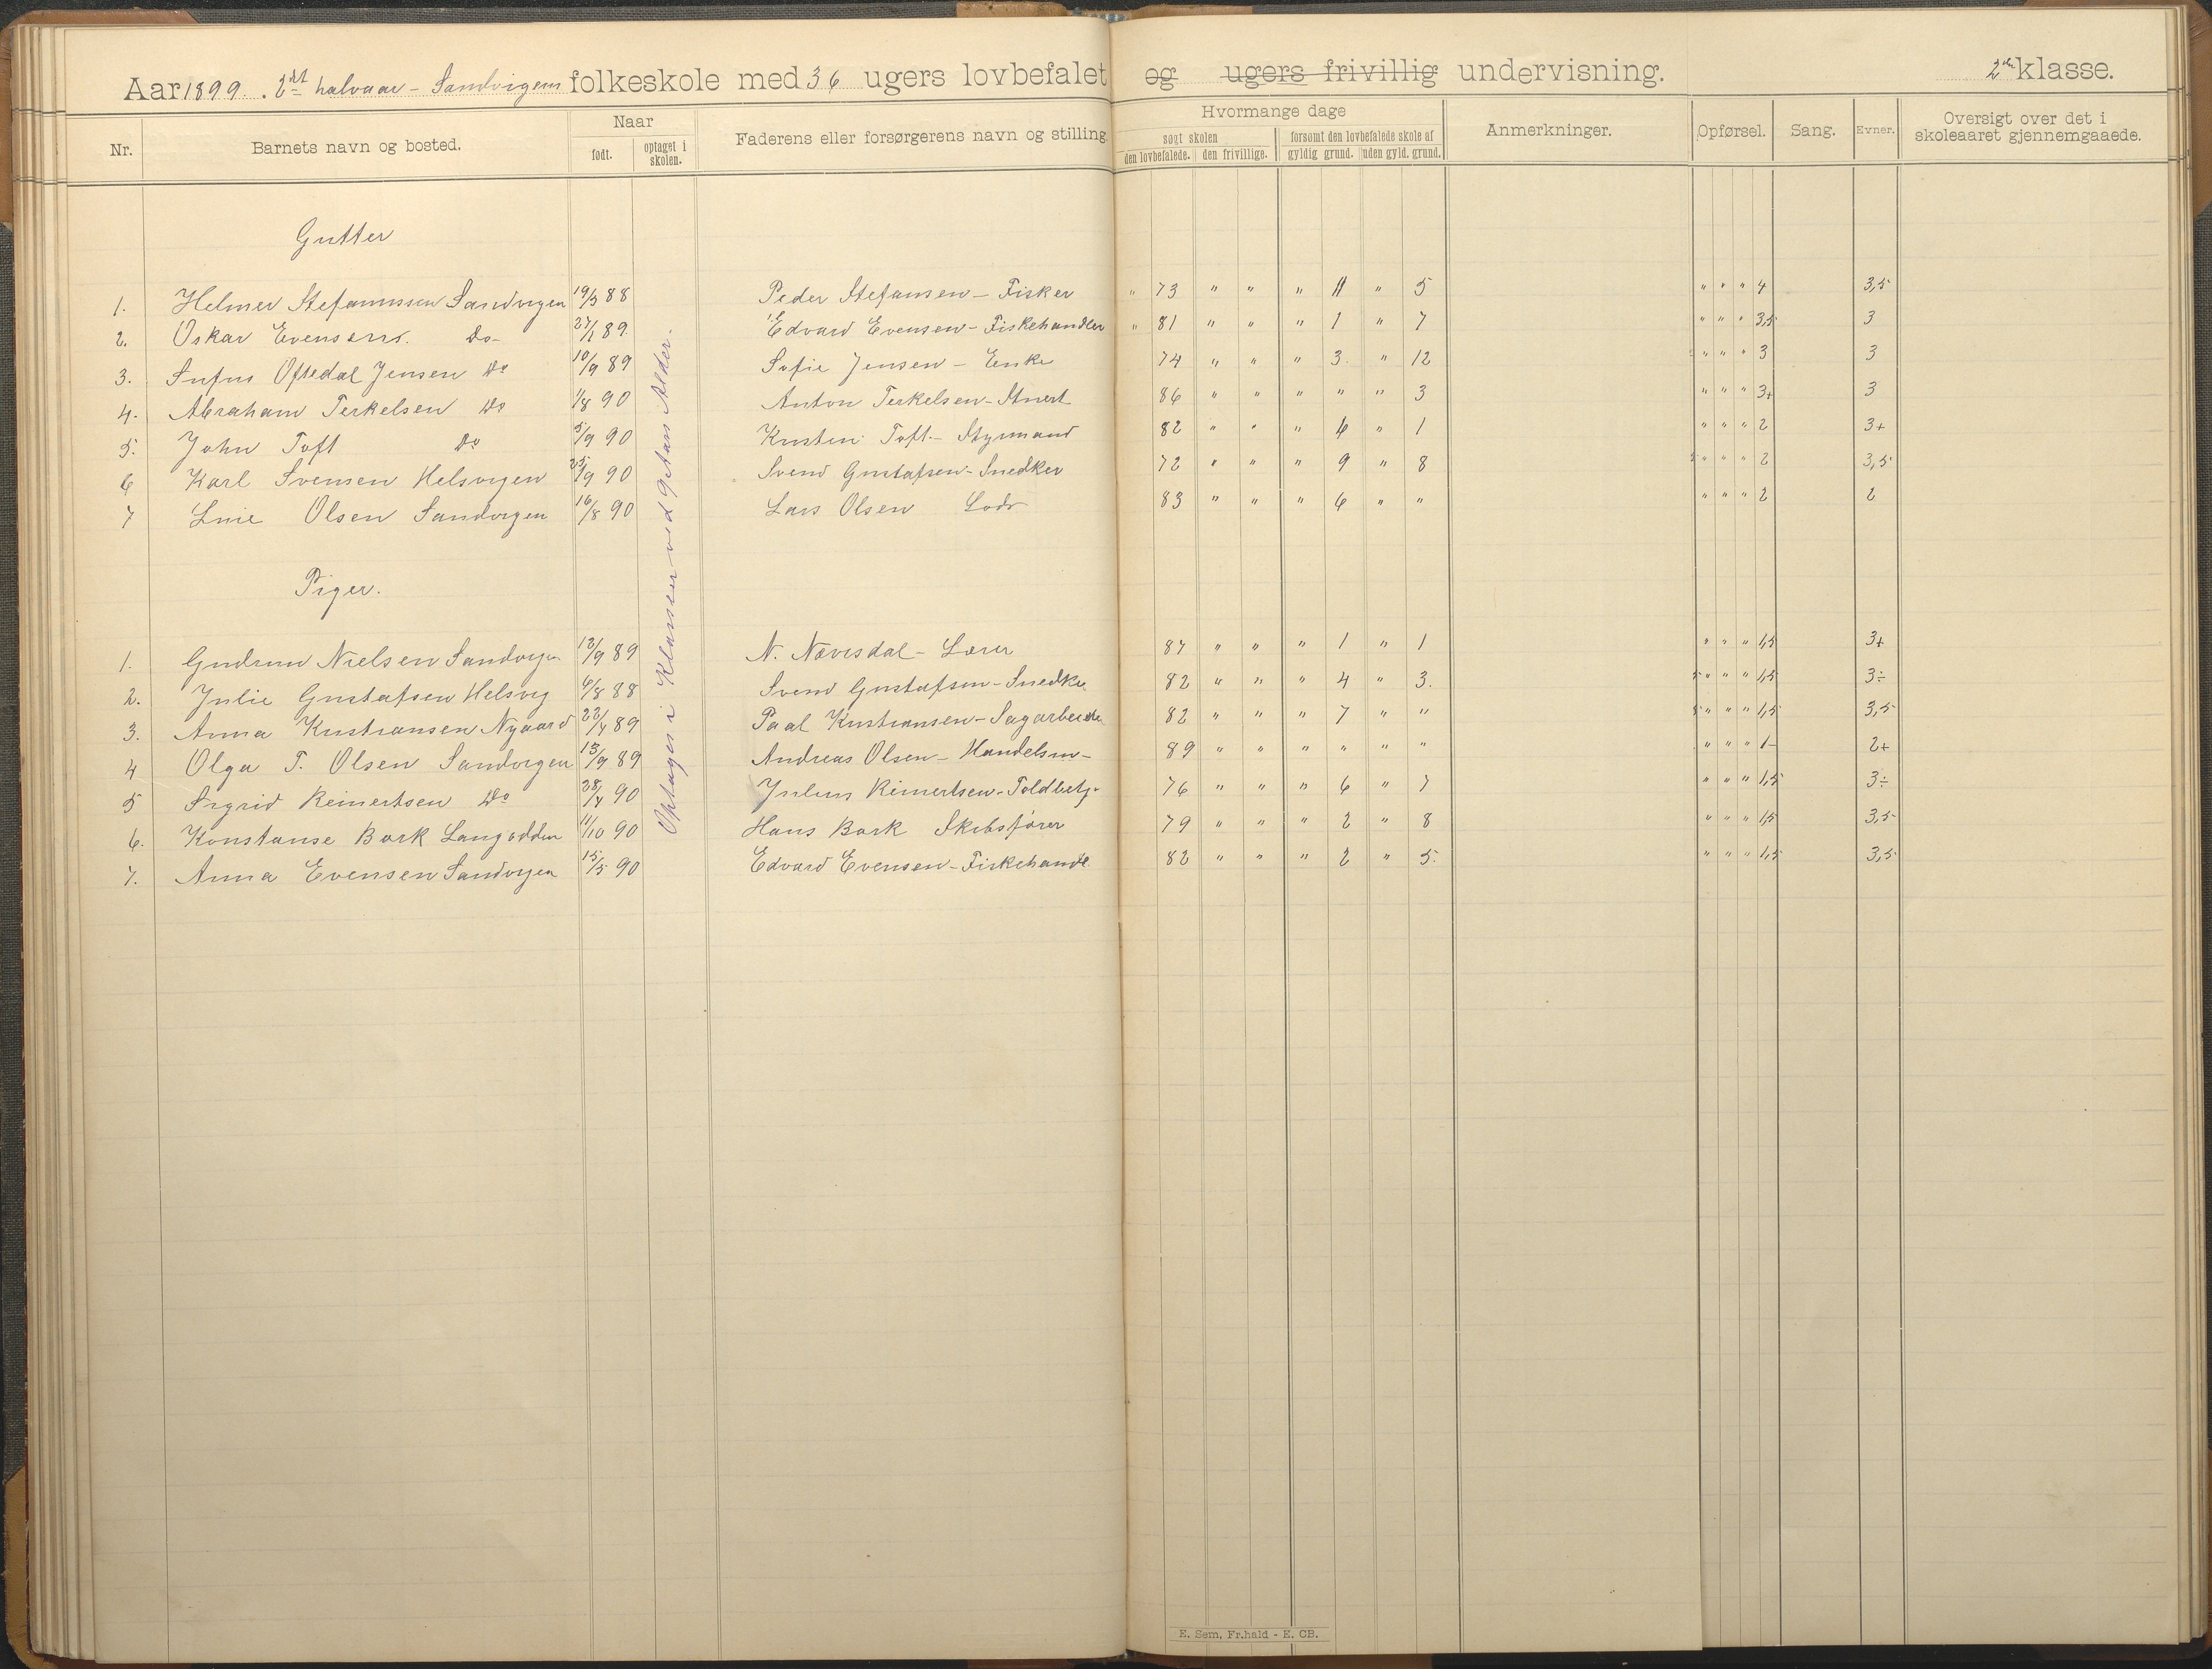 Aar 1899. 2det halvaar - Sandvigens folkeskole med 36 ugers lovbefalet og ugers frivillig undervisning. 2den klasse.
Nr. Barnets navn og bosted. Naar født. optaget i skolen. Faderens eller forsørgerens navn og stilling. Hvormange dage søgt skolen den lovbefalede. den frivillige. forsømt den lovbefalede skole af gyldig grund. uden gyld. grund. Anmerkninger. Opførsel. Sang. Evner. Oversigt over det i skoleaaret gjennemgaaede.
Gutter
1. Helmer Stefanussen Sandvigen 19/3 88 Peder Stefansen - Fisker " 73 " " " 11 " 5 " " " 4 3,5
2. Oskar Evensen. Do- 27/1 89. Edvard Evensen - Fiskehandler " 81 " " " 1 " 7 " " " 3,5 3
3. Oftedal Jensen Do 10/9 89 Sofie Jensen - Enke 74 " " " 3. " 12 " " " 3 3
4. Abraham Terkelsen Do 1/8 90 Anton Terkelsen - 86 " " " " " 3 " " " 3+ 3
5. John Toft Do 5/9 90 Kristen Toft - Styrmand 82 " " " 6 " 1 " " " 2 3+
6 Karl Svensen Helsvigen 25/9 90 Svend Gustafsen - Snedker 72 " " " 9 " 8 " " " 2 3,5
7 Olsen Sandvigen 16/8 90 Lars Olsen Lods 83 " " " 6 " " " " " 2 2
Piger.
1. Gudrun Nielsen Sandvigen 12/9 89 N. Nævesdal - Lærer 87 " " " 1 " 1 " " " 1,5 3+
2. Julie Gustafsen Helsvig 6/8 88 Svend Gustafsen - Snedker 82 " " " 4 " 3. " " " 1,5 3÷
3. Anna Kristiansen Nygaard 22/4 89 Paal Kristiansen - Sagarbeider 82 " " " 7 " " " " " 1,5 3,5
4 Olga T. Olsen Sandvigen 13/9 89 Andreas Olsen - Handelsm- 89 " " " " " " " " " 1- 2+
5 Sigrid Reinertsen Do 28/4 90 Julius Reinertsen - Toldbetj- 76 " " " 6 " 7 " " " 1,5 3÷
6. Konstanse Bork Langodden 11/10 90 Hans Bork Skibsfører 79 " " " 2 " 8 " " " 1,5 3,5
7. Anna Evensen Sandvigen 15/5 90 Edvard Evensen - Fiskehandl. 82 " " " 2 " 5. " " " 1,5 3,5
Optages i Klassen ved 9 Aars Alder.
E. Sem, Fr.hald - E. CB.